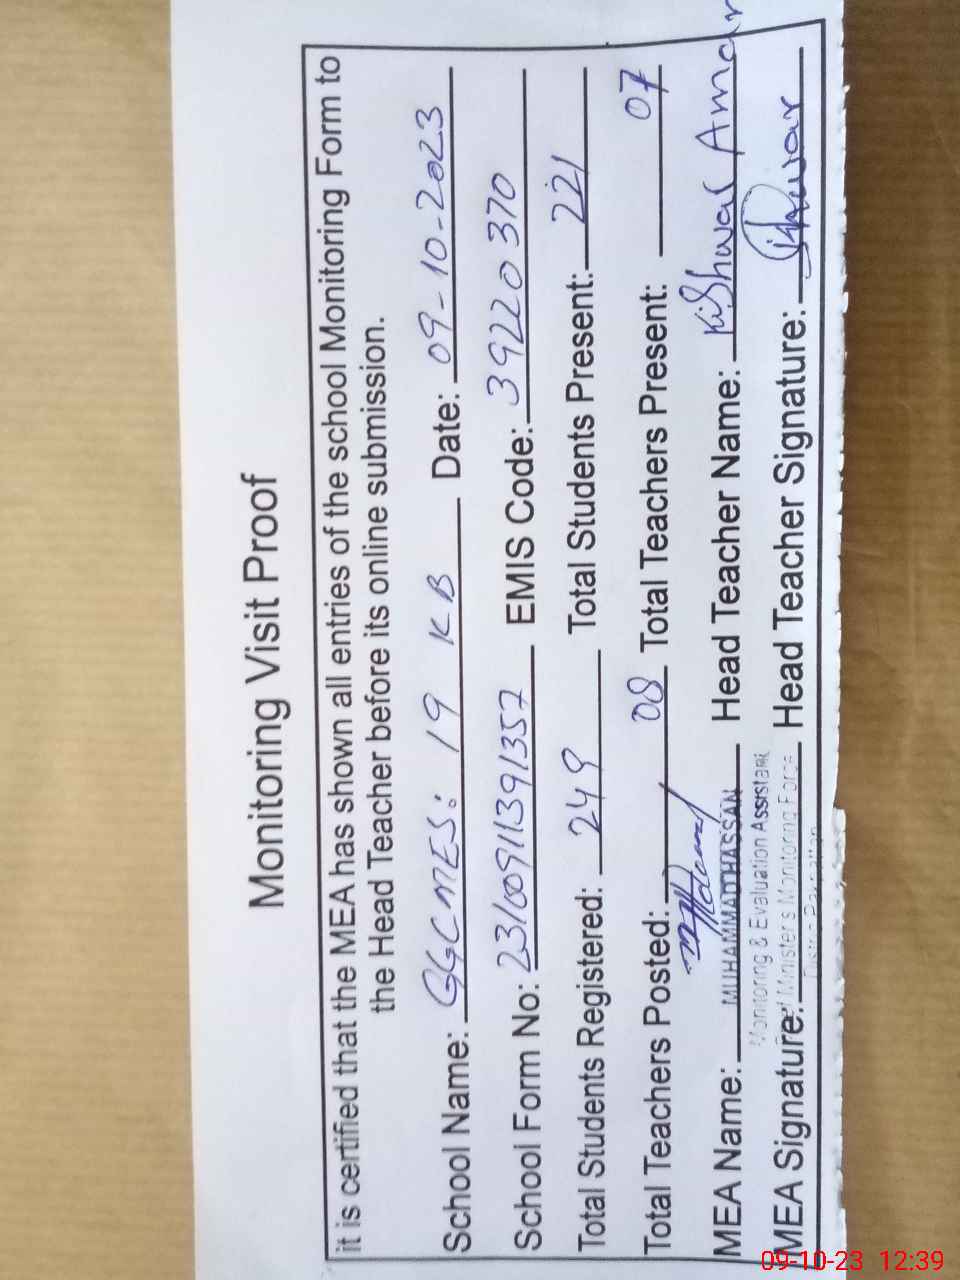 Monitoring Visit Proof
it is certified that the MEA has shown all entries of the school Monitoring Form to
the Head Teacher before its online submission.
School Name: GGCMES: 19 KB Date: 09-10-2023
School Form No: 23100911391357 EMIS Code: 39220370
Total Students Registered: 249 Total Students Present: 221
Total Teachers Posted: 08 Total Teachers Present: 07
MEA Name: MUHAMMAD HASSAN Head Teacher Name: Kishwar Amar
Monitoring & Evaluation Assistant
MEA Signature: Minister's Monitoring Force Head Teacher Signature: Kishwar
09-10-23 12:39